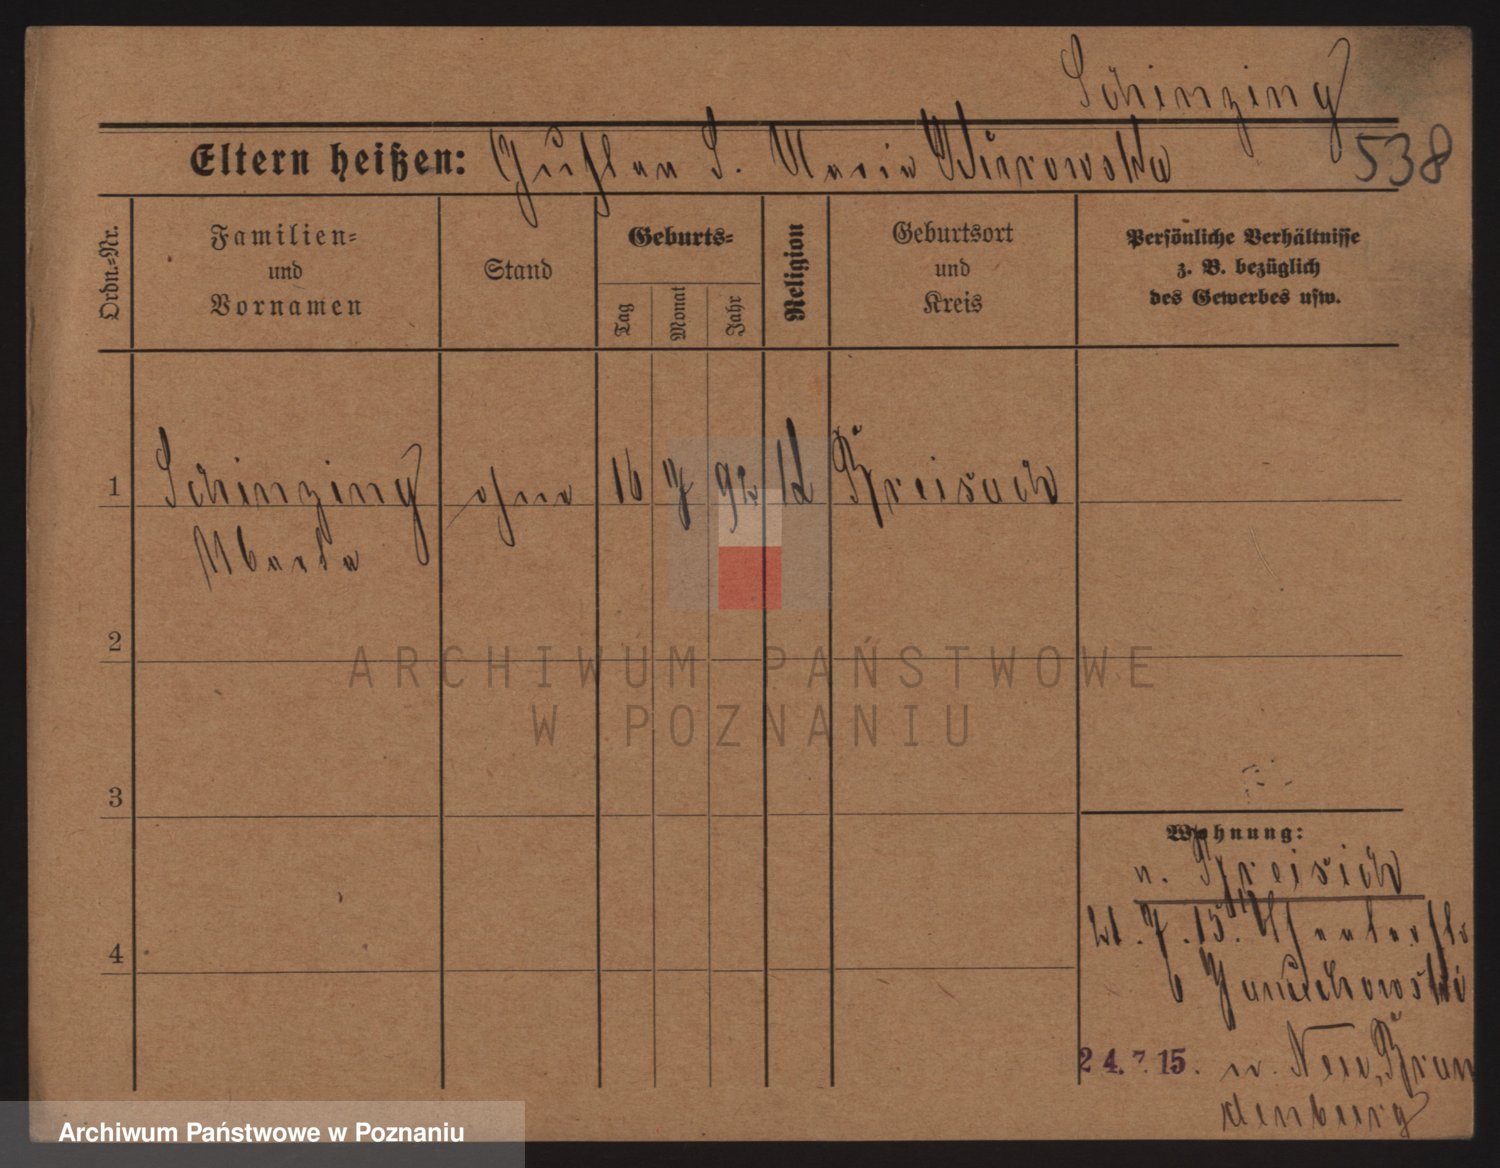 Schinzing
538
Eltern heißen: Gustav S. Maria Burowska
Ordn.-Nr.
Familien-
und
Vornamen
Stand
Geburts-
Tag
Monat
Jahr
Religion
Geburtsort
und
Kreis
Persönliche Verhältnisse
z. B. bezüglich
des Gewerbes usw.
1
Schinzing ohne 16 92 k Breisach
2
ARCHIWUM PAŃSTWOWE
W POZNANIU
3
Wohnung:
4
n. Breisich
7. 15.
b Januchowski
24. 7. 15. n. Neu Bran
denburg
Archiwum Państwowe w Poznaniu